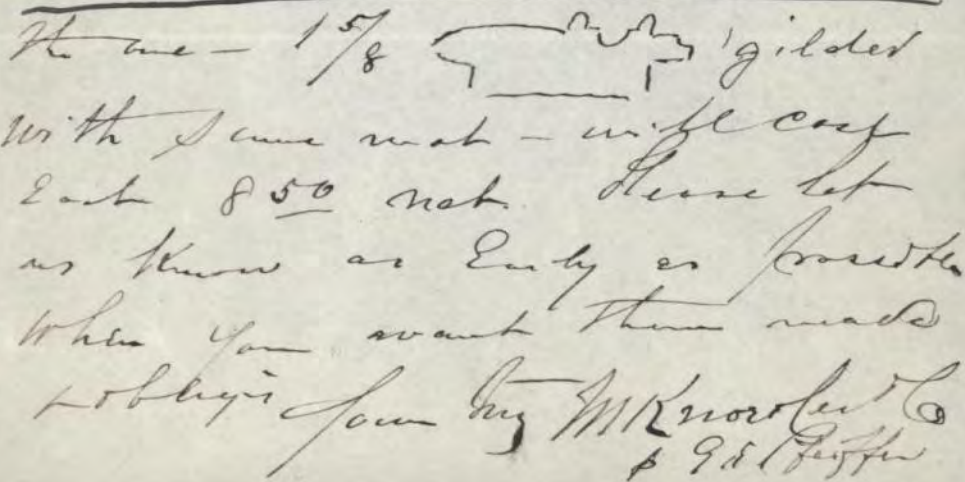 The one — 1 5/8 gilded
with same mat — will cost
Each 8 50 net. Please let
us Know as Early as possible
When you want them made
& oblige Yours Try M Knoedler & Co
p G E Pfeiffer